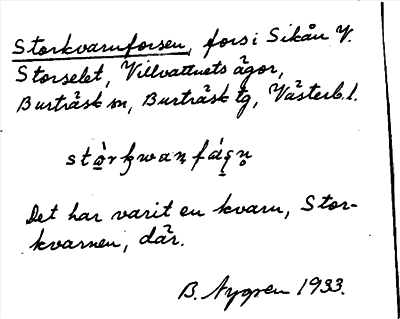 Storkvarnforsen, fors i Sikån V.
Storselet, Villvattnets ägor,
Burträsk sn, Burträsk tg, Västerb. l.
Det har varit en kvarn, Stor-
kvarnen, där.
B. Nygren 1933.